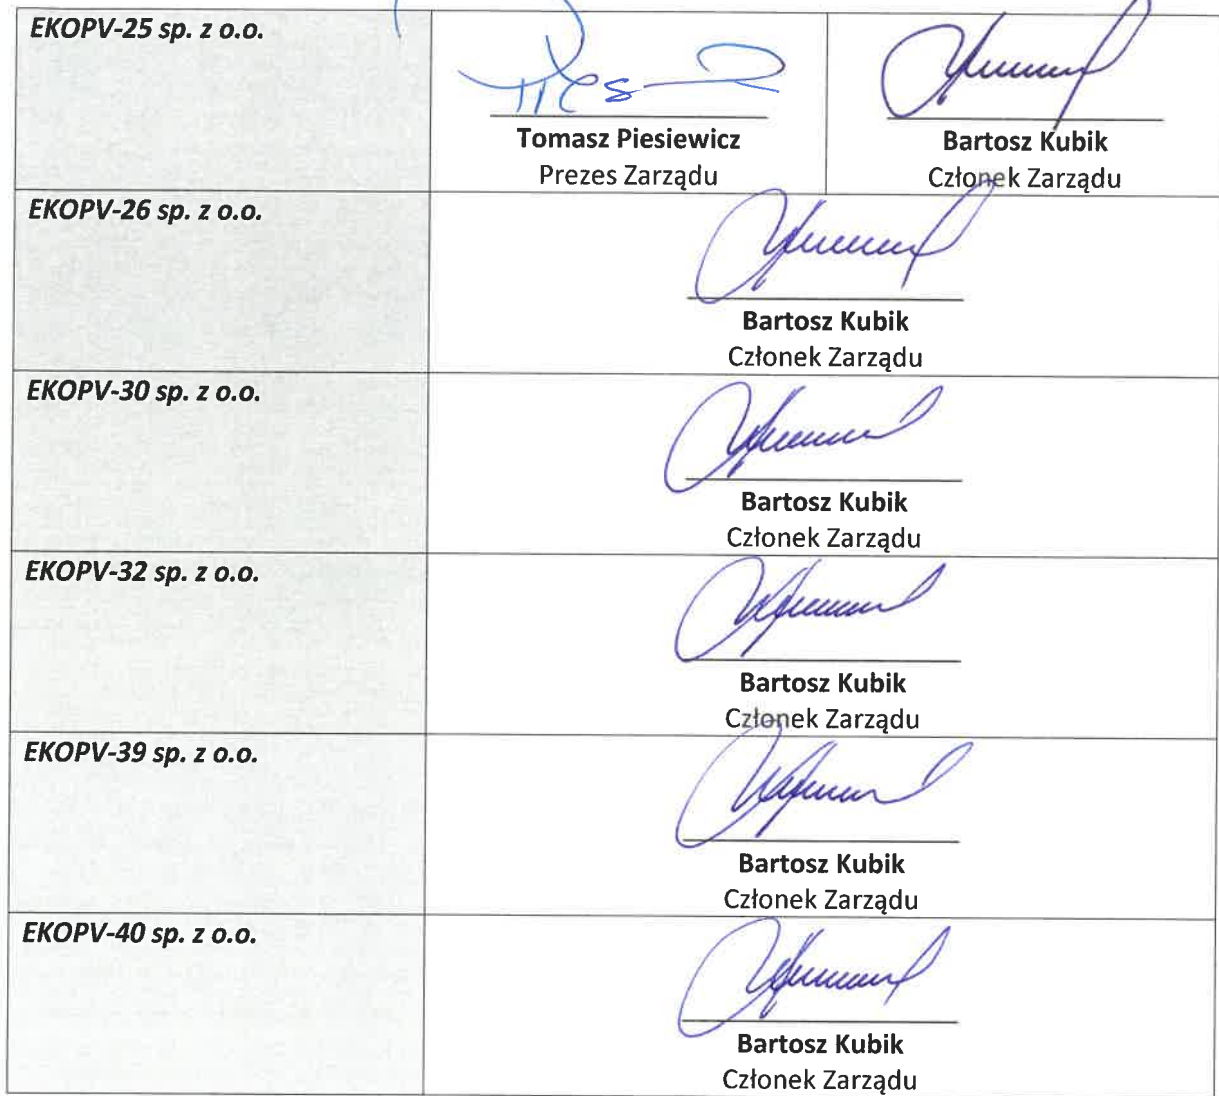 EKOPV-25 sp. z o.o.
Tomasz Piesiewicz
Prezes Zarządu
Bartosz Kubik
Członek Zarządu
EKOPV-26 sp. z o.o.
Bartosz Kubik
Członek Zarządu
EKOPV-30 sp. z o.o.
Bartosz Kubik
Członek Zarządu
EKOPV-32 sp. z o.o.
Bartosz Kubik
Członek Zarządu
EKOPV-39 sp. z o.o.
Bartosz Kubik
Członek Zarządu
EKOPV-40 sp. z o.o.
Bartosz Kubik
Członek Zarządu